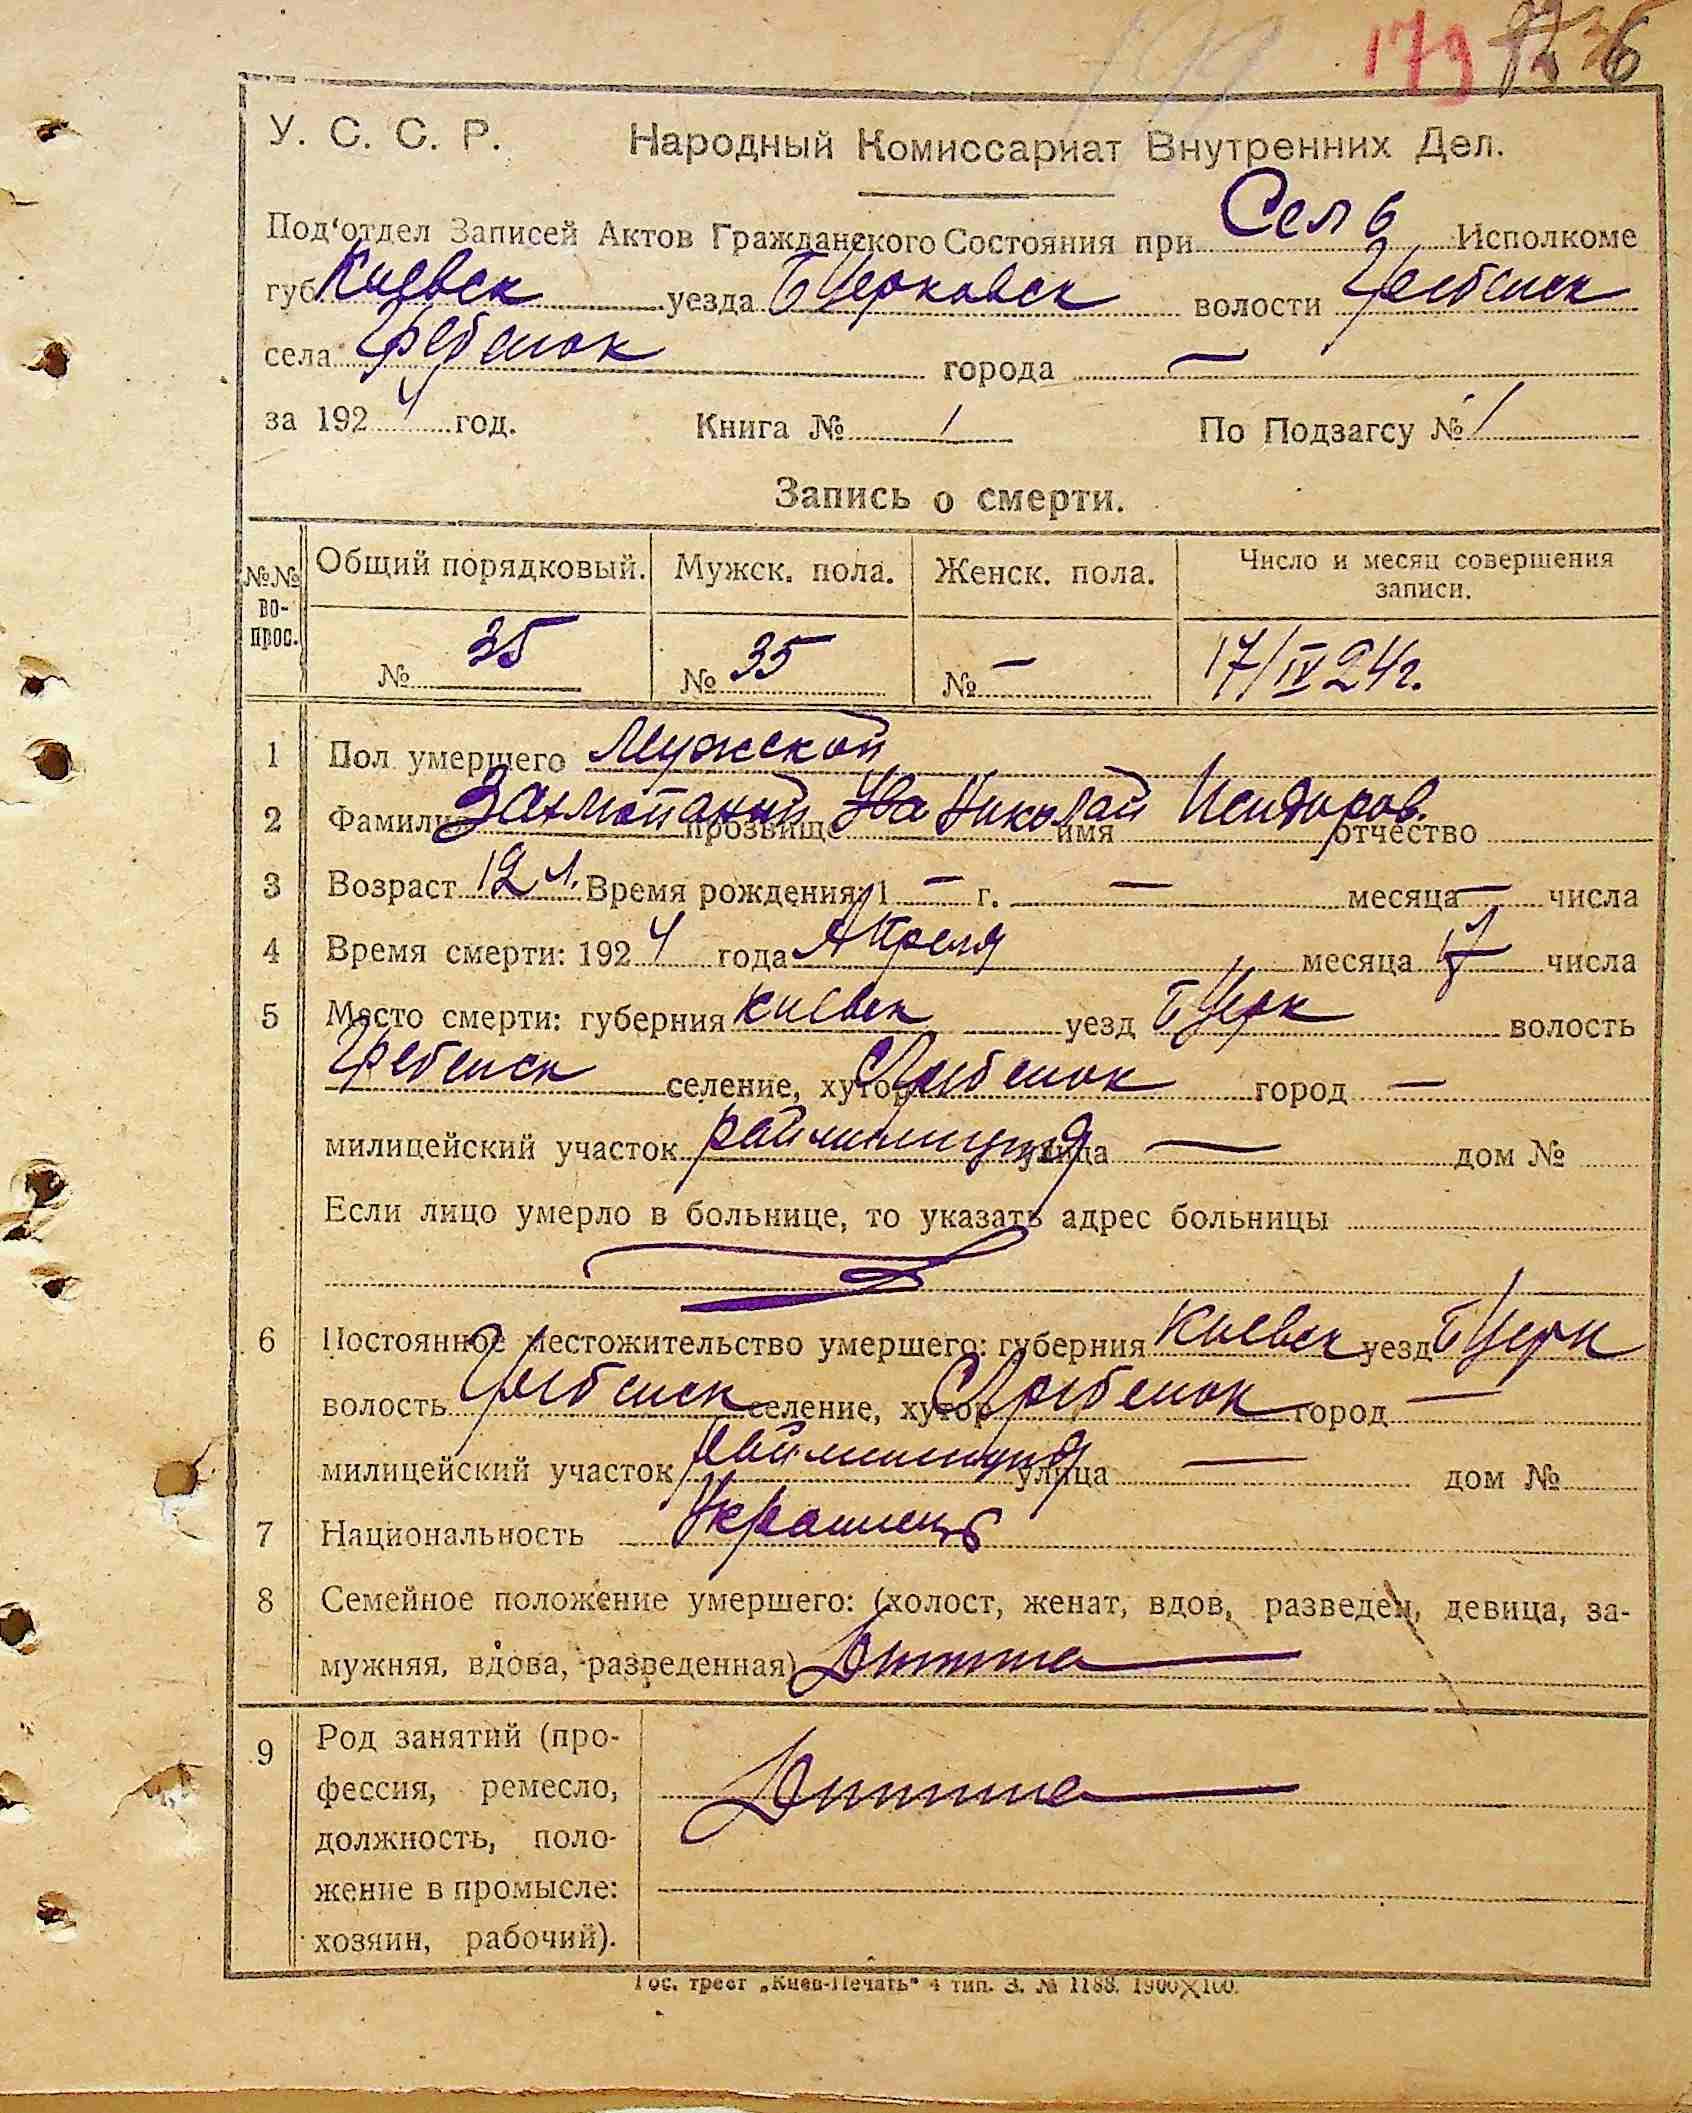 179 36
У. С. С. Р. Народный Комиссариат Внутренних Дел.
Под'отдел Записей Актов Гражданского Состояния при Сель Исполкоме
губ Киевск уезда БЦерковск волости Гребенск
села Гребенок города —
за 1924 год. Книга № 1 По Подзагсу № 1
Запись о смерти.
№№ во-прос. Общий порядковый. Мужск. пола. Женск. пола. Число и месяц совершения записи.
№ 35 № 35 № — 17/IV 24 г.
1 Пол умершего Мужской
2 Фамилия прозвище имя Николай отчество Исидоров.
3 Возраст 12 л. Время рождения: 1 — г. — месяца — числа
4 Время смерти: 1924 года Апреля месяца 17 числа
5 Место смерти: губерния Киевск уезд БЦерк волость
Гребенск селение, хутор Гребенок город —
милицейский участок раймилиция улица — дом №
Если лицо умерло в больнице, то указать адрес больницы
6 Постоянное местожительство умершего: губерния Киевск уезд БЦерк
волость Гребенск селение, хутор Гребенок город —
милицейский участок раймилиция улица — дом №
7 Национальность Украинець
8 Семейное положение умершего: (холост, женат, вдов, разведен, девица, за-
мужняя, вдова, разведенная) Дитина —
9 Род занятий (про-
фессия, ремесло, Дитина —
должность, поло-
жение в промысле:
хозяин, рабочий).
Гос. трест „Киев-Печать" 4 тип. З. № 1188. 1900×100.